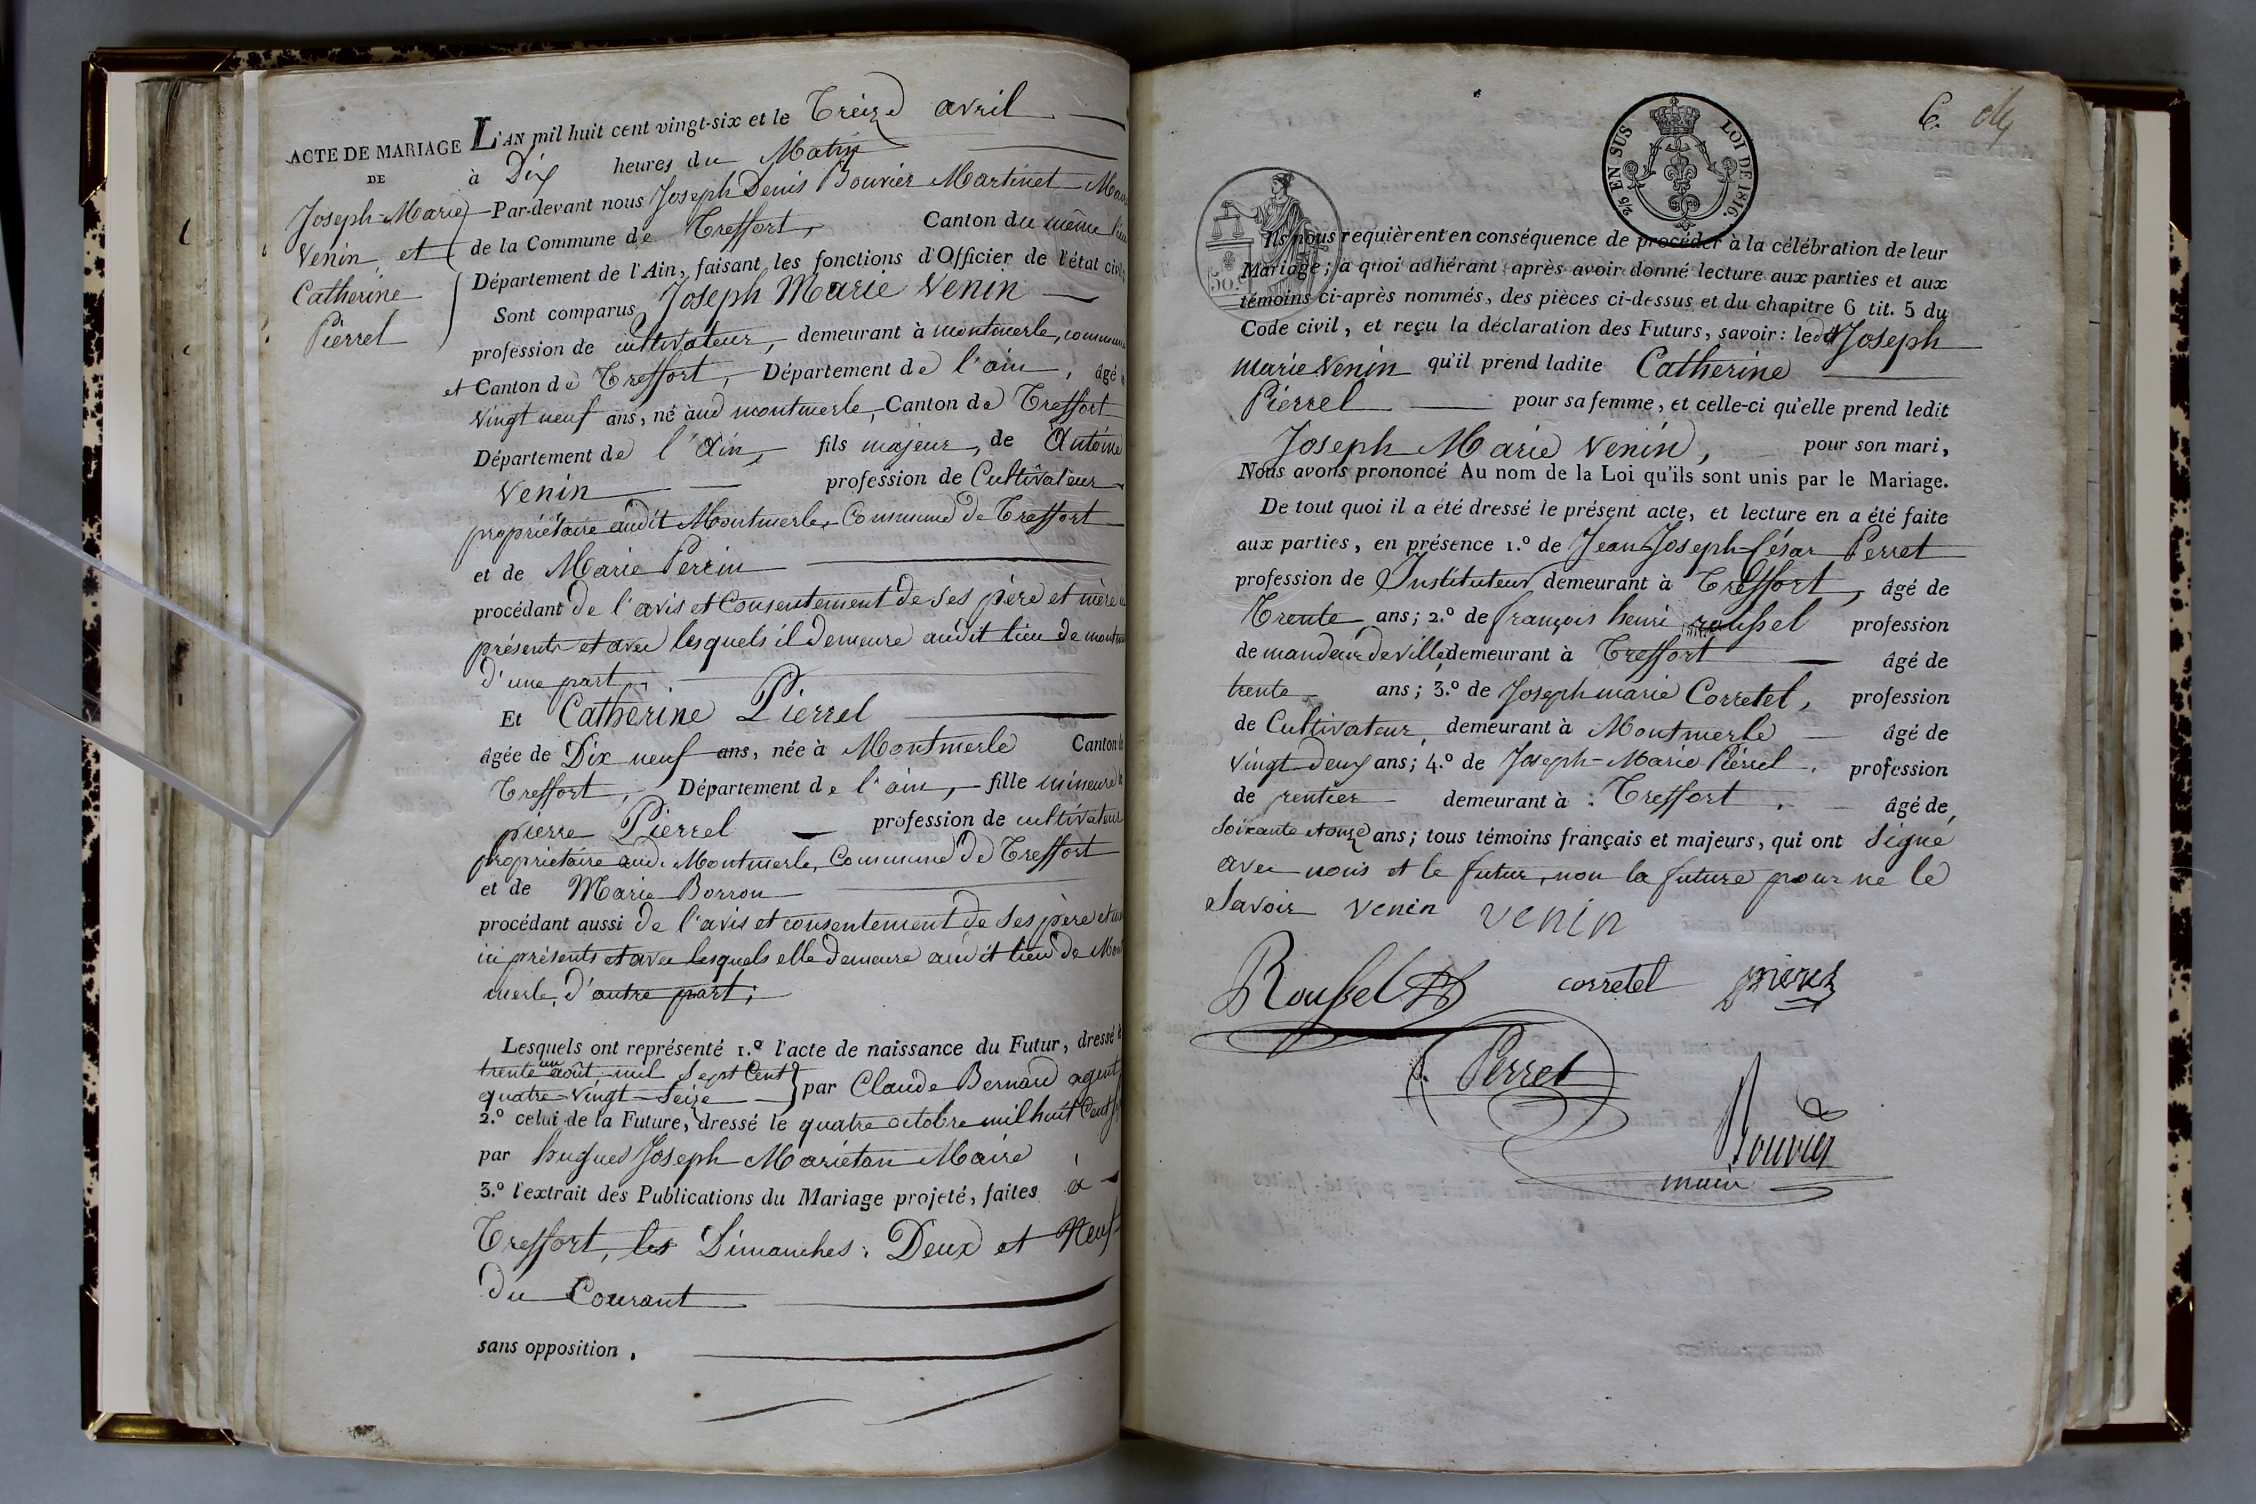 ACTE DE MARIAGE
DE
Joseph-Marie
Venin, et
Catherine
Pierrel
L'AN mil huit cent vingt-six et le Treize avril
à Dix heures du Matin
Par-devant nous Joseph Denis Bouvier Martinet
de la Commune de Treffort, Canton du même lieu
Département de l'Ain, faisant les fonctions d'Officier de l'état civil,
Sont comparus Joseph Marie Venin
profession de cultivateur, demeurant à montmerle, commune
et Canton de Treffort, Département de l'ain, âgé
vingt neuf ans, né aud montmerle, Canton de Treffort
Département de l'Ain, fils majeur, de Antoine
Venin profession de Cultivateur
propriétaire audit Montmerle, Commune de Treffort
et de Marie Perrin
procédant de l'avis et Consentement de ses père et mère
présents et avec lesquels il demeure audit lieu de
d'une part
Et Catherine Pierrel
âgée de Dix neuf ans, née à Montmerle Canton
Treffort, Département de l'ain, fille mineure
pierre Pierrel profession de cultivateur
propriétaire aud. Montmerle, Commune de Treffort
et de Marie Borron
procédant aussi de l'avis et consentement de ses père et
ici présents et avec lesquels elle demeure audit lieu de Mont
merle, d'autre part;
Lesquels ont représenté 1.º l'acte de naissance du Futur, dressé
trente un août mil sept Cent
quatre-vingt-seize par Claude Bernard agent
2.º celui de la Future, dressé le quatre octobre mil huit Cent
par hugues Joseph Mariétan Maire
3.º l'extrait des Publications du Mariage projeté, faites à
Treffort, les Dimanches: Deux et Neuf
du Courant
sans opposition.
C.
2/5 EN SUS LOI DE 1816.
50.
Ils nous requièrent en conséquence de procéder à la célébration de leur
Mariage; à quoi adhérant, après avoir donné lecture aux parties et aux
témoins ci-après nommés, des pièces ci-dessus et du chapitre 6 tit. 5 du
Code civil, et reçu la déclaration des Futurs, savoir: ledit Joseph
Marie Venin qu'il prend ladite Catherine
Pierrel pour sa femme, et celle-ci qu'elle prend ledit
Joseph Marie Venin, pour son mari,
Nous avons prononcé Au nom de la Loi qu'ils sont unis par le Mariage.
De tout quoi il a été dressé le présent acte, et lecture en a été faite
aux parties, en présence 1.º de Jean-Joseph-César Perret
profession de Instituteur demeurant à Treffort, âgé de
Trente ans; 2.º de françois henri roussel profession
de mandeur de ville, demeurant à Treffort âgé de
trente ans; 3.º de Joseph marie Corretel, profession
de Cultivateur, demeurant à Montmerle âgé de
vingt-deux ans; 4.º de Joseph-Marie Pierrel. profession
de rentier demeurant à : Treffort. âgé de
soixante et onze ans; tous témoins français et majeurs, qui ont signé
avec nous et le futur, non la future pour ne le
savoir venin venin
Roussel corretel
Perret
Bouvier
maire